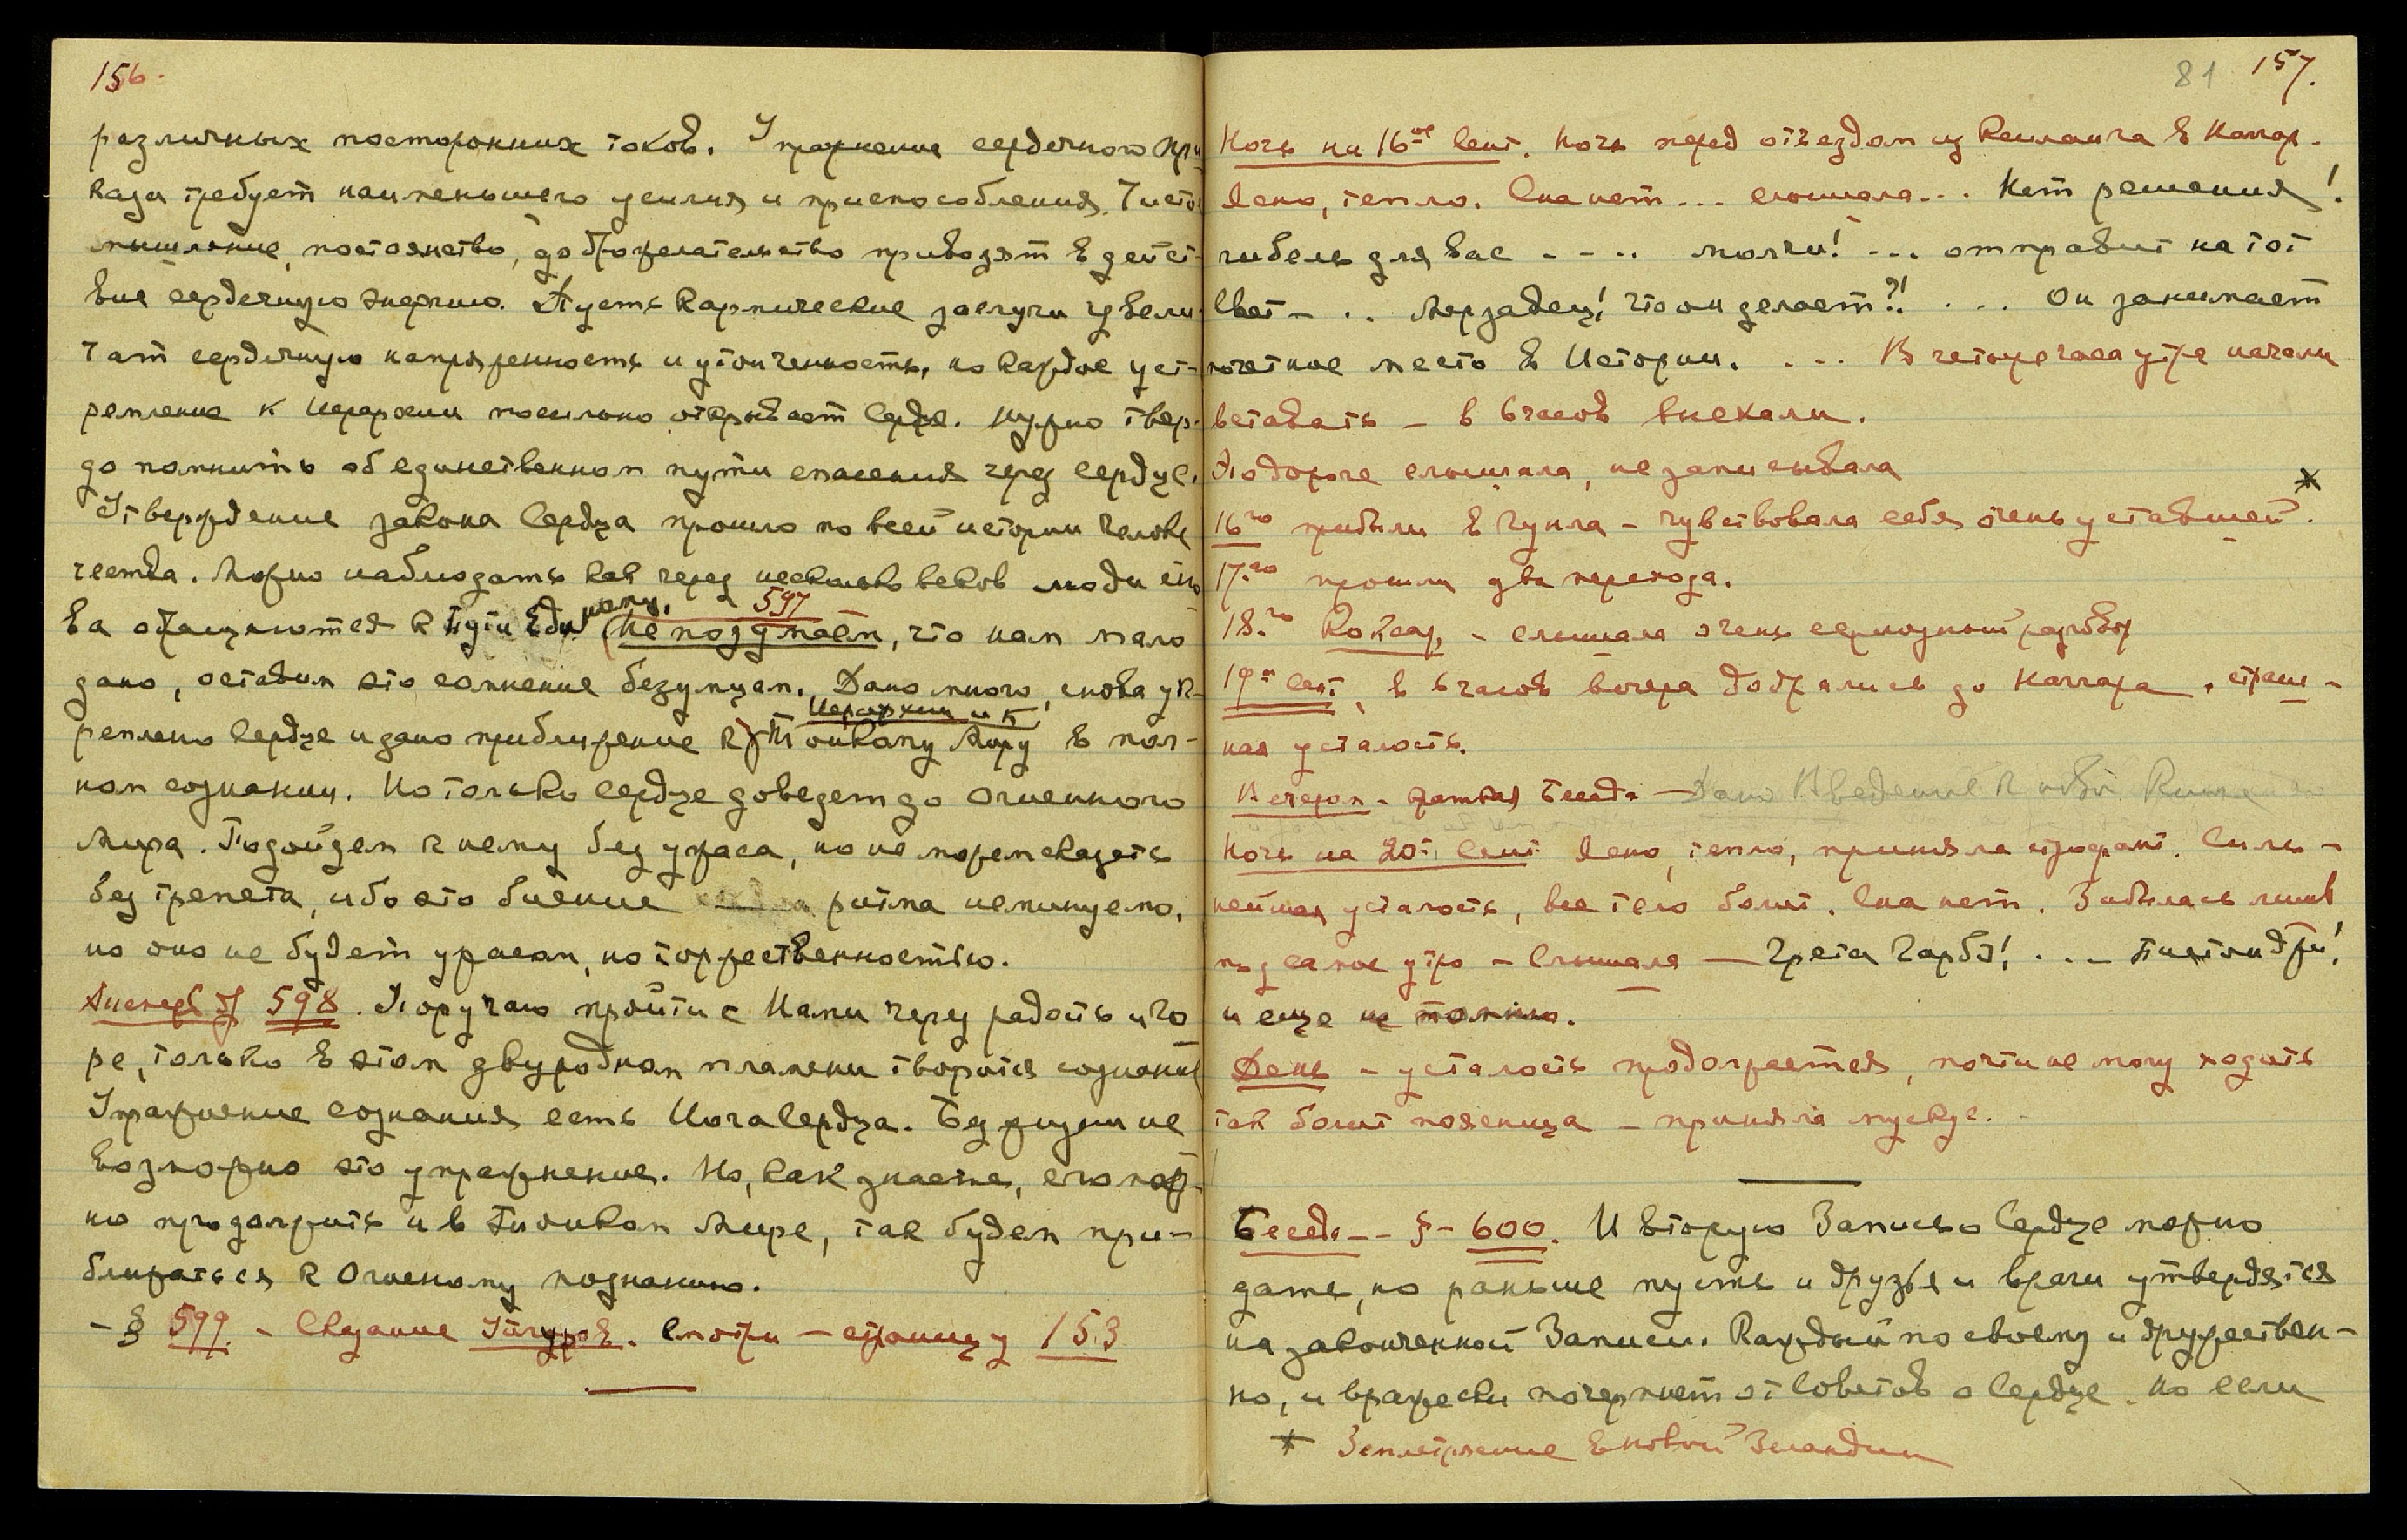 156.
различных посторонних токов. Упражнение сердечного при
каза требует наименьшего усилия и приспособления. Чисто
мышление, постоянство, доброжелательство приводят в дейст-
вие сердечную энергию. Пусть кармические заслуги увели-
чат сердечную напряженность и утонченность, но каждое уст-
ремление к Иерархии посильно открывает Сердце. Нужно твер-
до помнить об единственном пути спасения через сердце.
Утверждение закона Сердца прошло по всей истории челове
чества. Можно наблюдать как через несколько веков люди сно
ва обращаются к Пути Единому. 597
(Не подумаем, что нам мало
дано, оставим это сомнение безумцам. Дано много, снова ук-
реплено Сердце и дано приближение к Иерархии и к Тонкому Миру в пол-
ном сознании. Но только Сердце доведет до Огненного
Мира. Подойдем к нему без ужаса, но не можем сказать
без трепета, ибо это биение ритма неминуемо,
но оно не будет ужасом, но торжественностью.
598. Поручаю пройти с Нами через радость и го
ре, только в этом двуродном пламени творится сознание
Упражнение сознания есть Йога Сердца. Без жизни не
возможно это упражнение. Но, как знаете, его мож-
но продолжить и в Тонком Мире, так будем при-
ближаться к Огненному познанию.
- § 599. - Сказание Уйгуров. Смотри - страницу 153
81 157.
Ночь на 16ое Сент. Ночь перед отъездом из Кейланга в Наггар.
Ясно, тепло. Сна нет... слышала... Нет решения!
гибель для вас - - .. молчи! ... отправит на тот
Свет - .. Мерзавец! Что он делает?! ... Он занимает
почетное место в Истории. ... В четыре часа утра начали
вставать - в 6 часов выехали.
По дороге слышала, не записывала
16го прибыли в Гундла - чувствовала себя очень уставшей. *
17.го прошли два перехода.
18.го Коксар, - слышала очень серьозный разговор
19го Сент, в 6 часов вечера добрались до Наггара, страш-
ная усталость.
Вечером - краткая Беседа - Дано Введение к новой Книге
Ночь на 20е Сент. Ясно, тепло, приняла строфант. Силь-
нейшая усталость, все тело болит. Сна нет. Забылась лишь
под самое утро - Слышала - Грета Гарбо! ...
и еще не помню.
День - усталость продолжается, почти не могу ходить
так болит поясница - приняла мускус.
Беседа - - § - 600. И вторую Запись о Сердце можно
дать, но раньше пусть и друзья и враги утвердятся
на законченной Записи. Каждый по своему и дружествен-
но, и вражески почерпнет от Советов о Сердце. Но если
* Землетрясение в Новой Зеландии